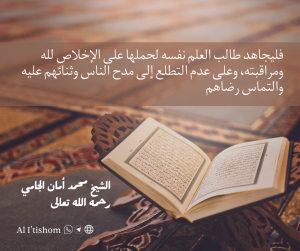 فليجاهد طالب العلم نفسه لحملها على الإخلاص لله
ومراقبته، وعلى عدم التطلع إلى مدح الناس وثنائهم عليه
والتماس رضاهم
الشيخ محمد أمان الجامي
رحمه الله تعالى
Al I'tishom